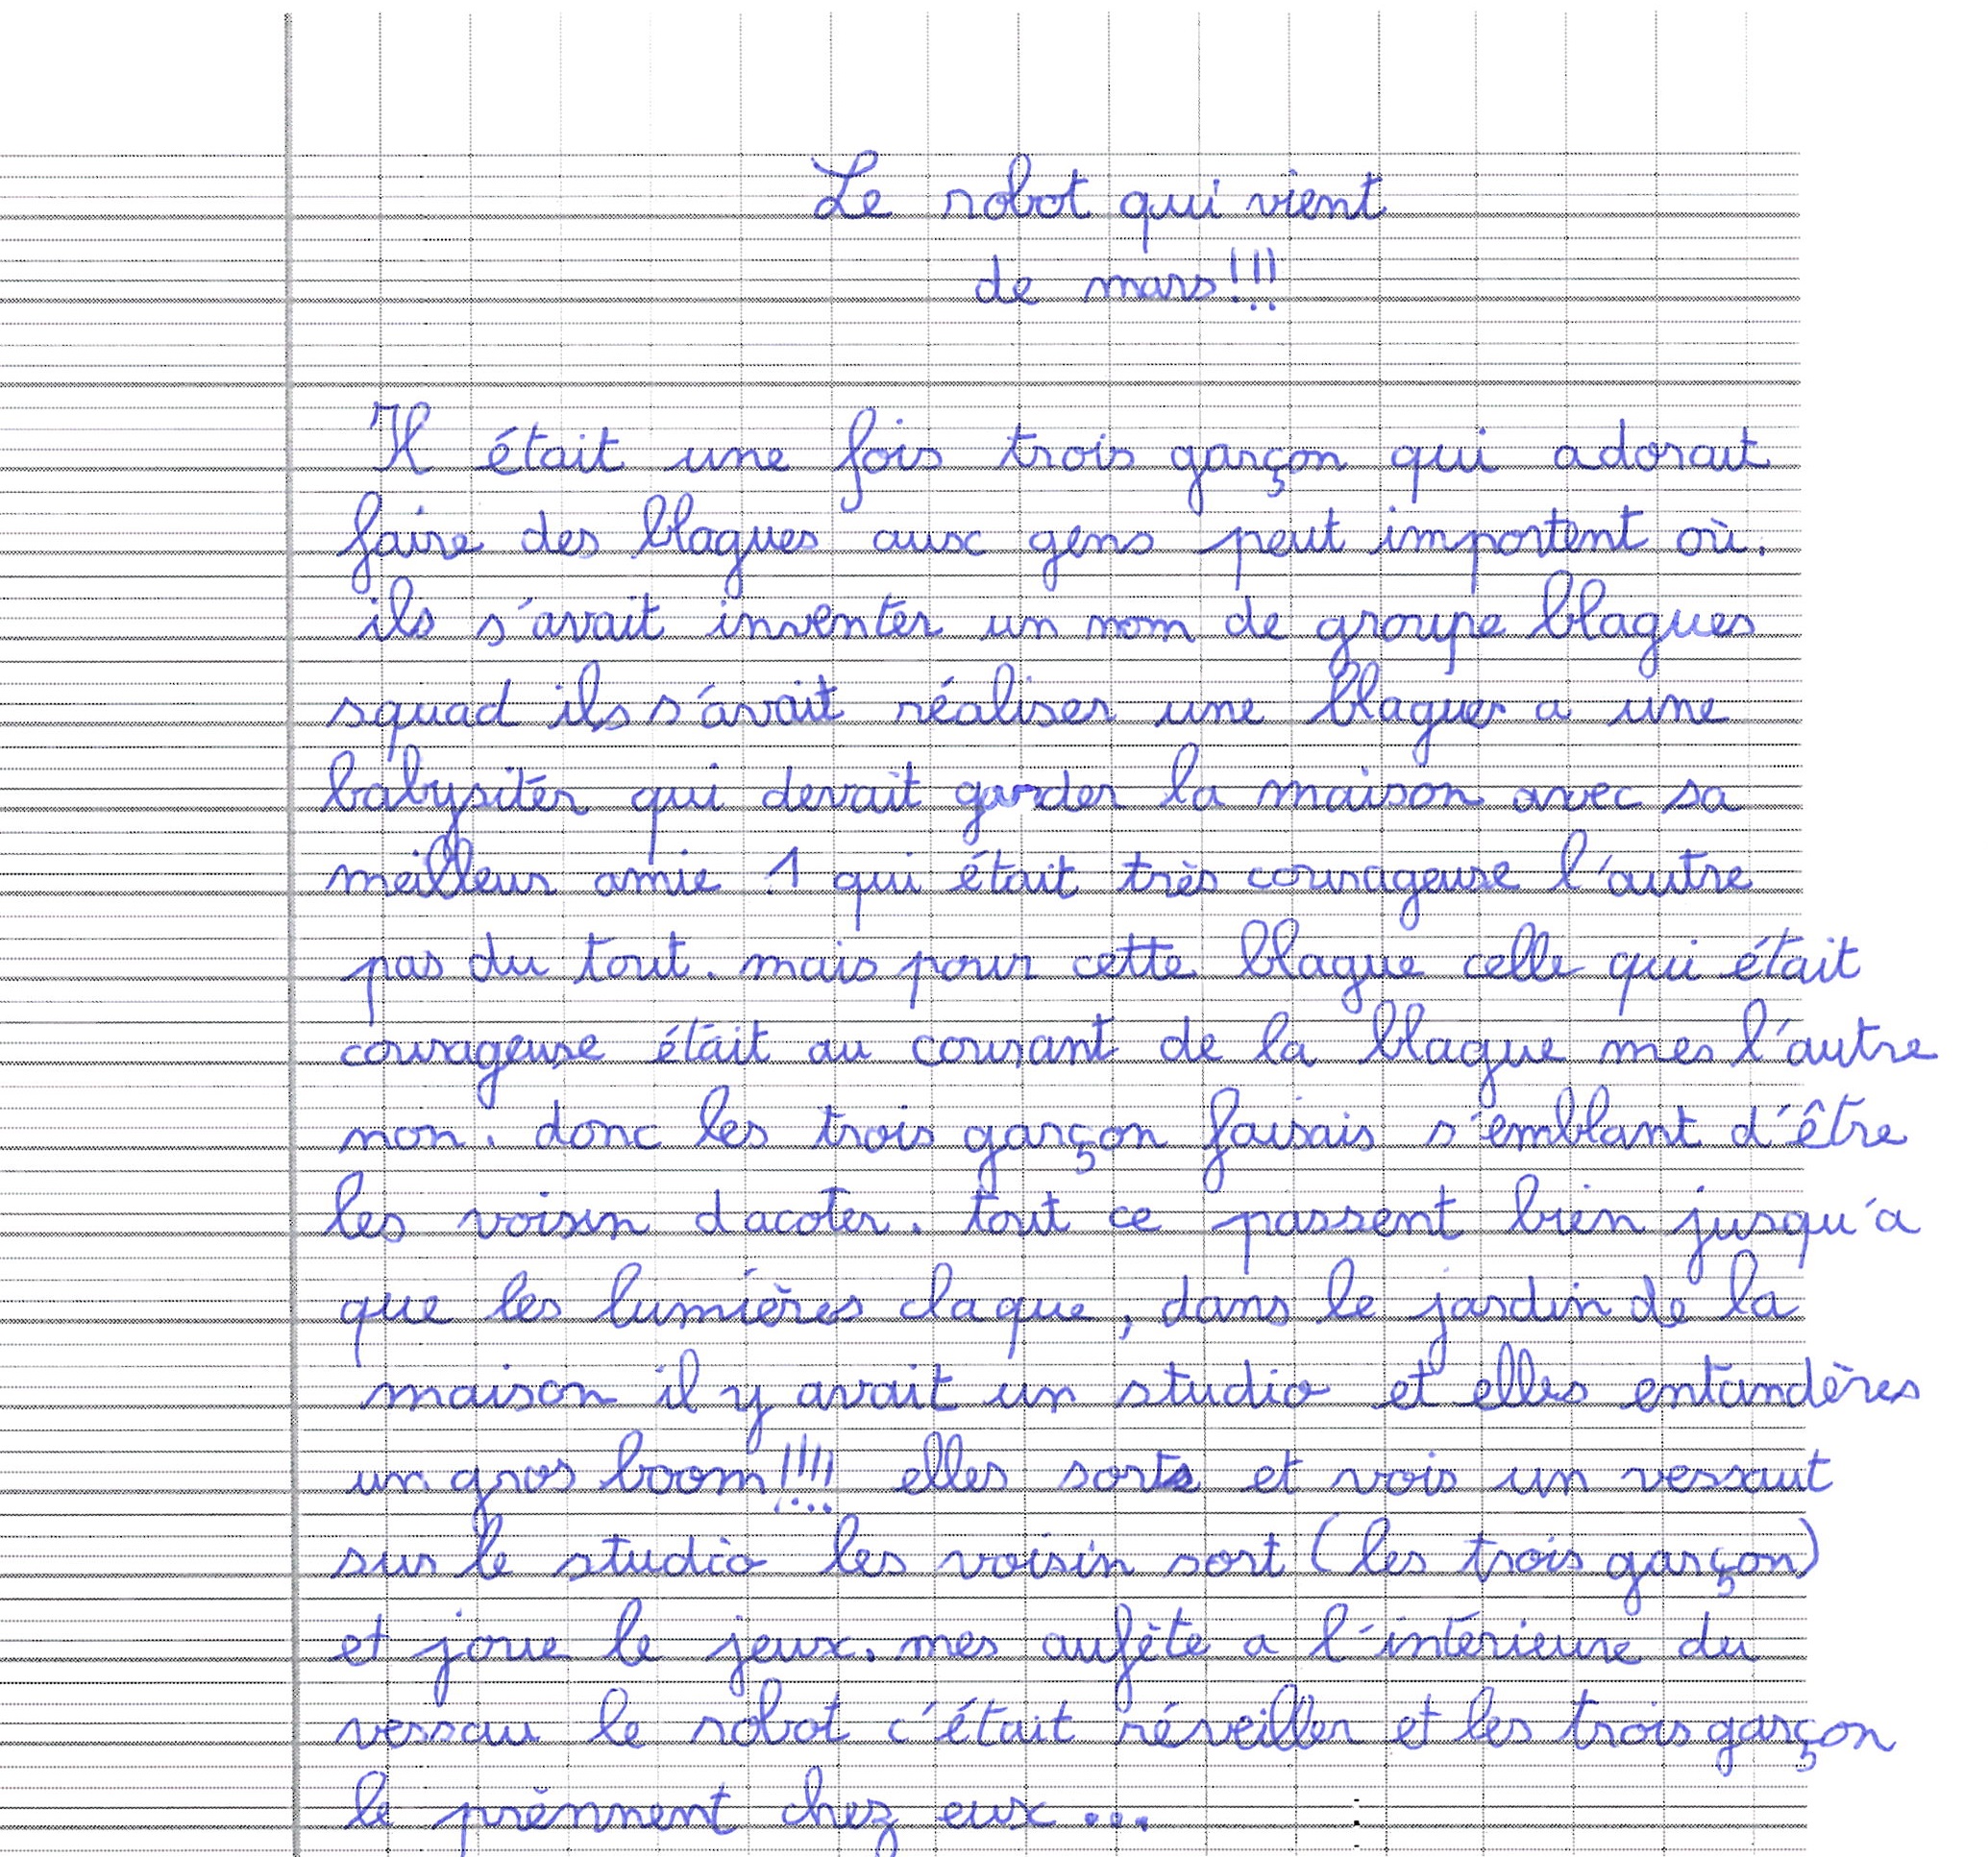 Le robot qui vient
de mars!!!
Il était une fois trois garçon qui adorait
faire des blagues aux gens peut importent où.
ils s'avait inventer un nom de groupe blagues
squad ils s'avait réaliser une blague a une
babysitér qui devait garder la maison avec sa
meilleur amie 1 qui était très courageuse l'autre
pas du tout. mais pour cette blague celle qui était
courageuse était au courant de la blague mes l'autre
non. donc les trois garçon faisais s'emblant d'être
les voisin dacoter. tout ce passent bien jusqu'a
que les lumières claque, dans le jardin de la
maison il y avait un studio et elles entandères
un gros boom!!!! elles sorts et vois un vessaut
sur le studio les voisin sort (les trois garçon)
et joue le jeux. mes aufète a l'intérieure du
vessau le robot c'était réveiller et les trois garçon
le prènnent chez eux...